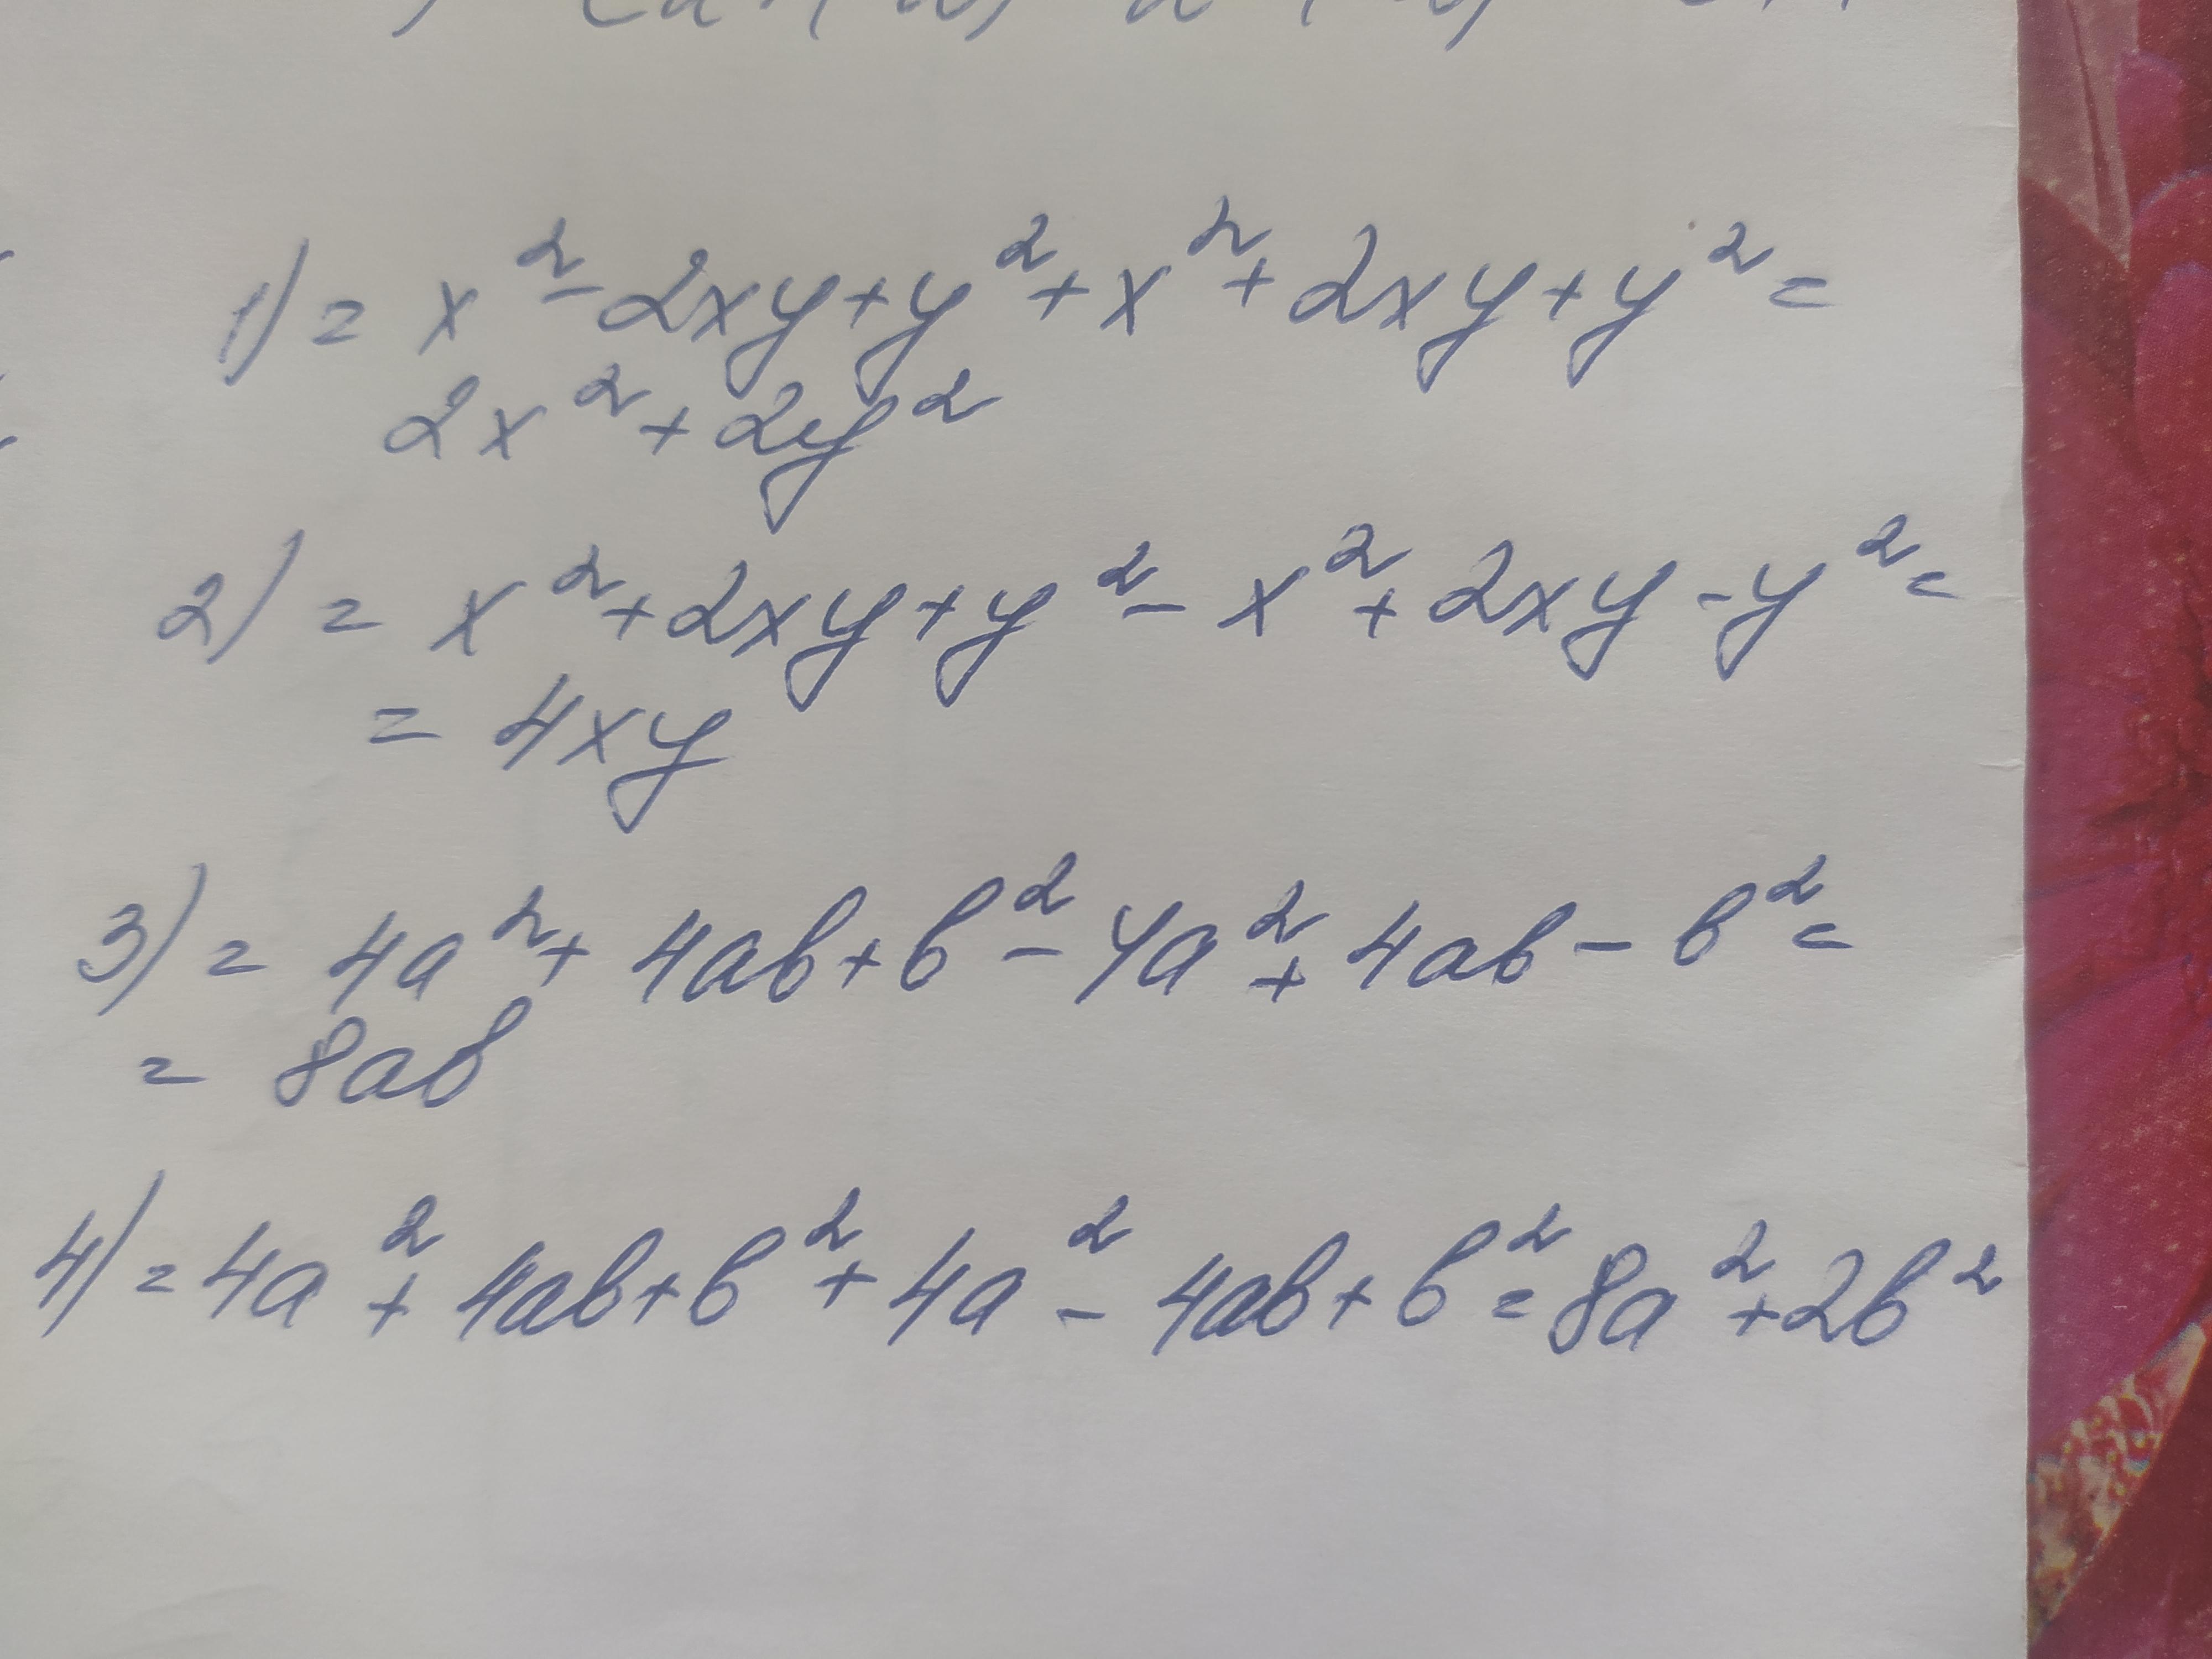 1) = x² - 2xy + y² + x² + 2xy + y² =
2x² + 2y²
2) = x² + 2xy + y² - x² + 2xy - y² =
= 4xy
3) = 4a² + 4ab + b² - 4a² + 4ab - b² =
= 8ab
4) = 4a² + 4ab + b² + 4a² - 4ab + b² = 8a² + 2b²